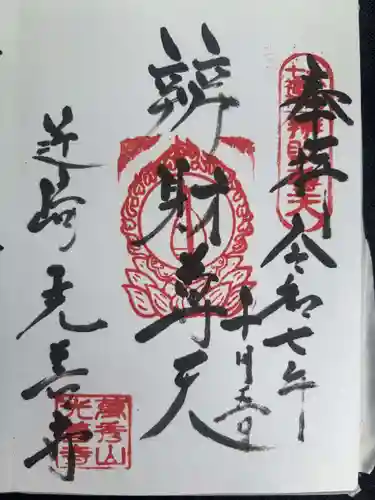 奉拝
令和七年
十月五日
辨財尊天
光善寺
辨財尊天
秀山
光善寺